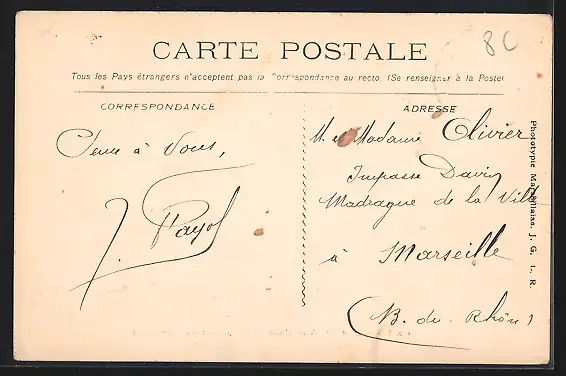 8C
CARTE POSTALE
Tous les Pays étrangers n'acceptent pas la Correspondance au recto. (Se renseigner à la Poste)
CORRESPONDANCE
à Vous,
J. Payol
ADRESSE
M. et Madame Olivier
Impasse Davin
Madrague de la Ville
à Marseille
(B. du Rhône)
Phototypie Marseillaise, J. G. L. R.